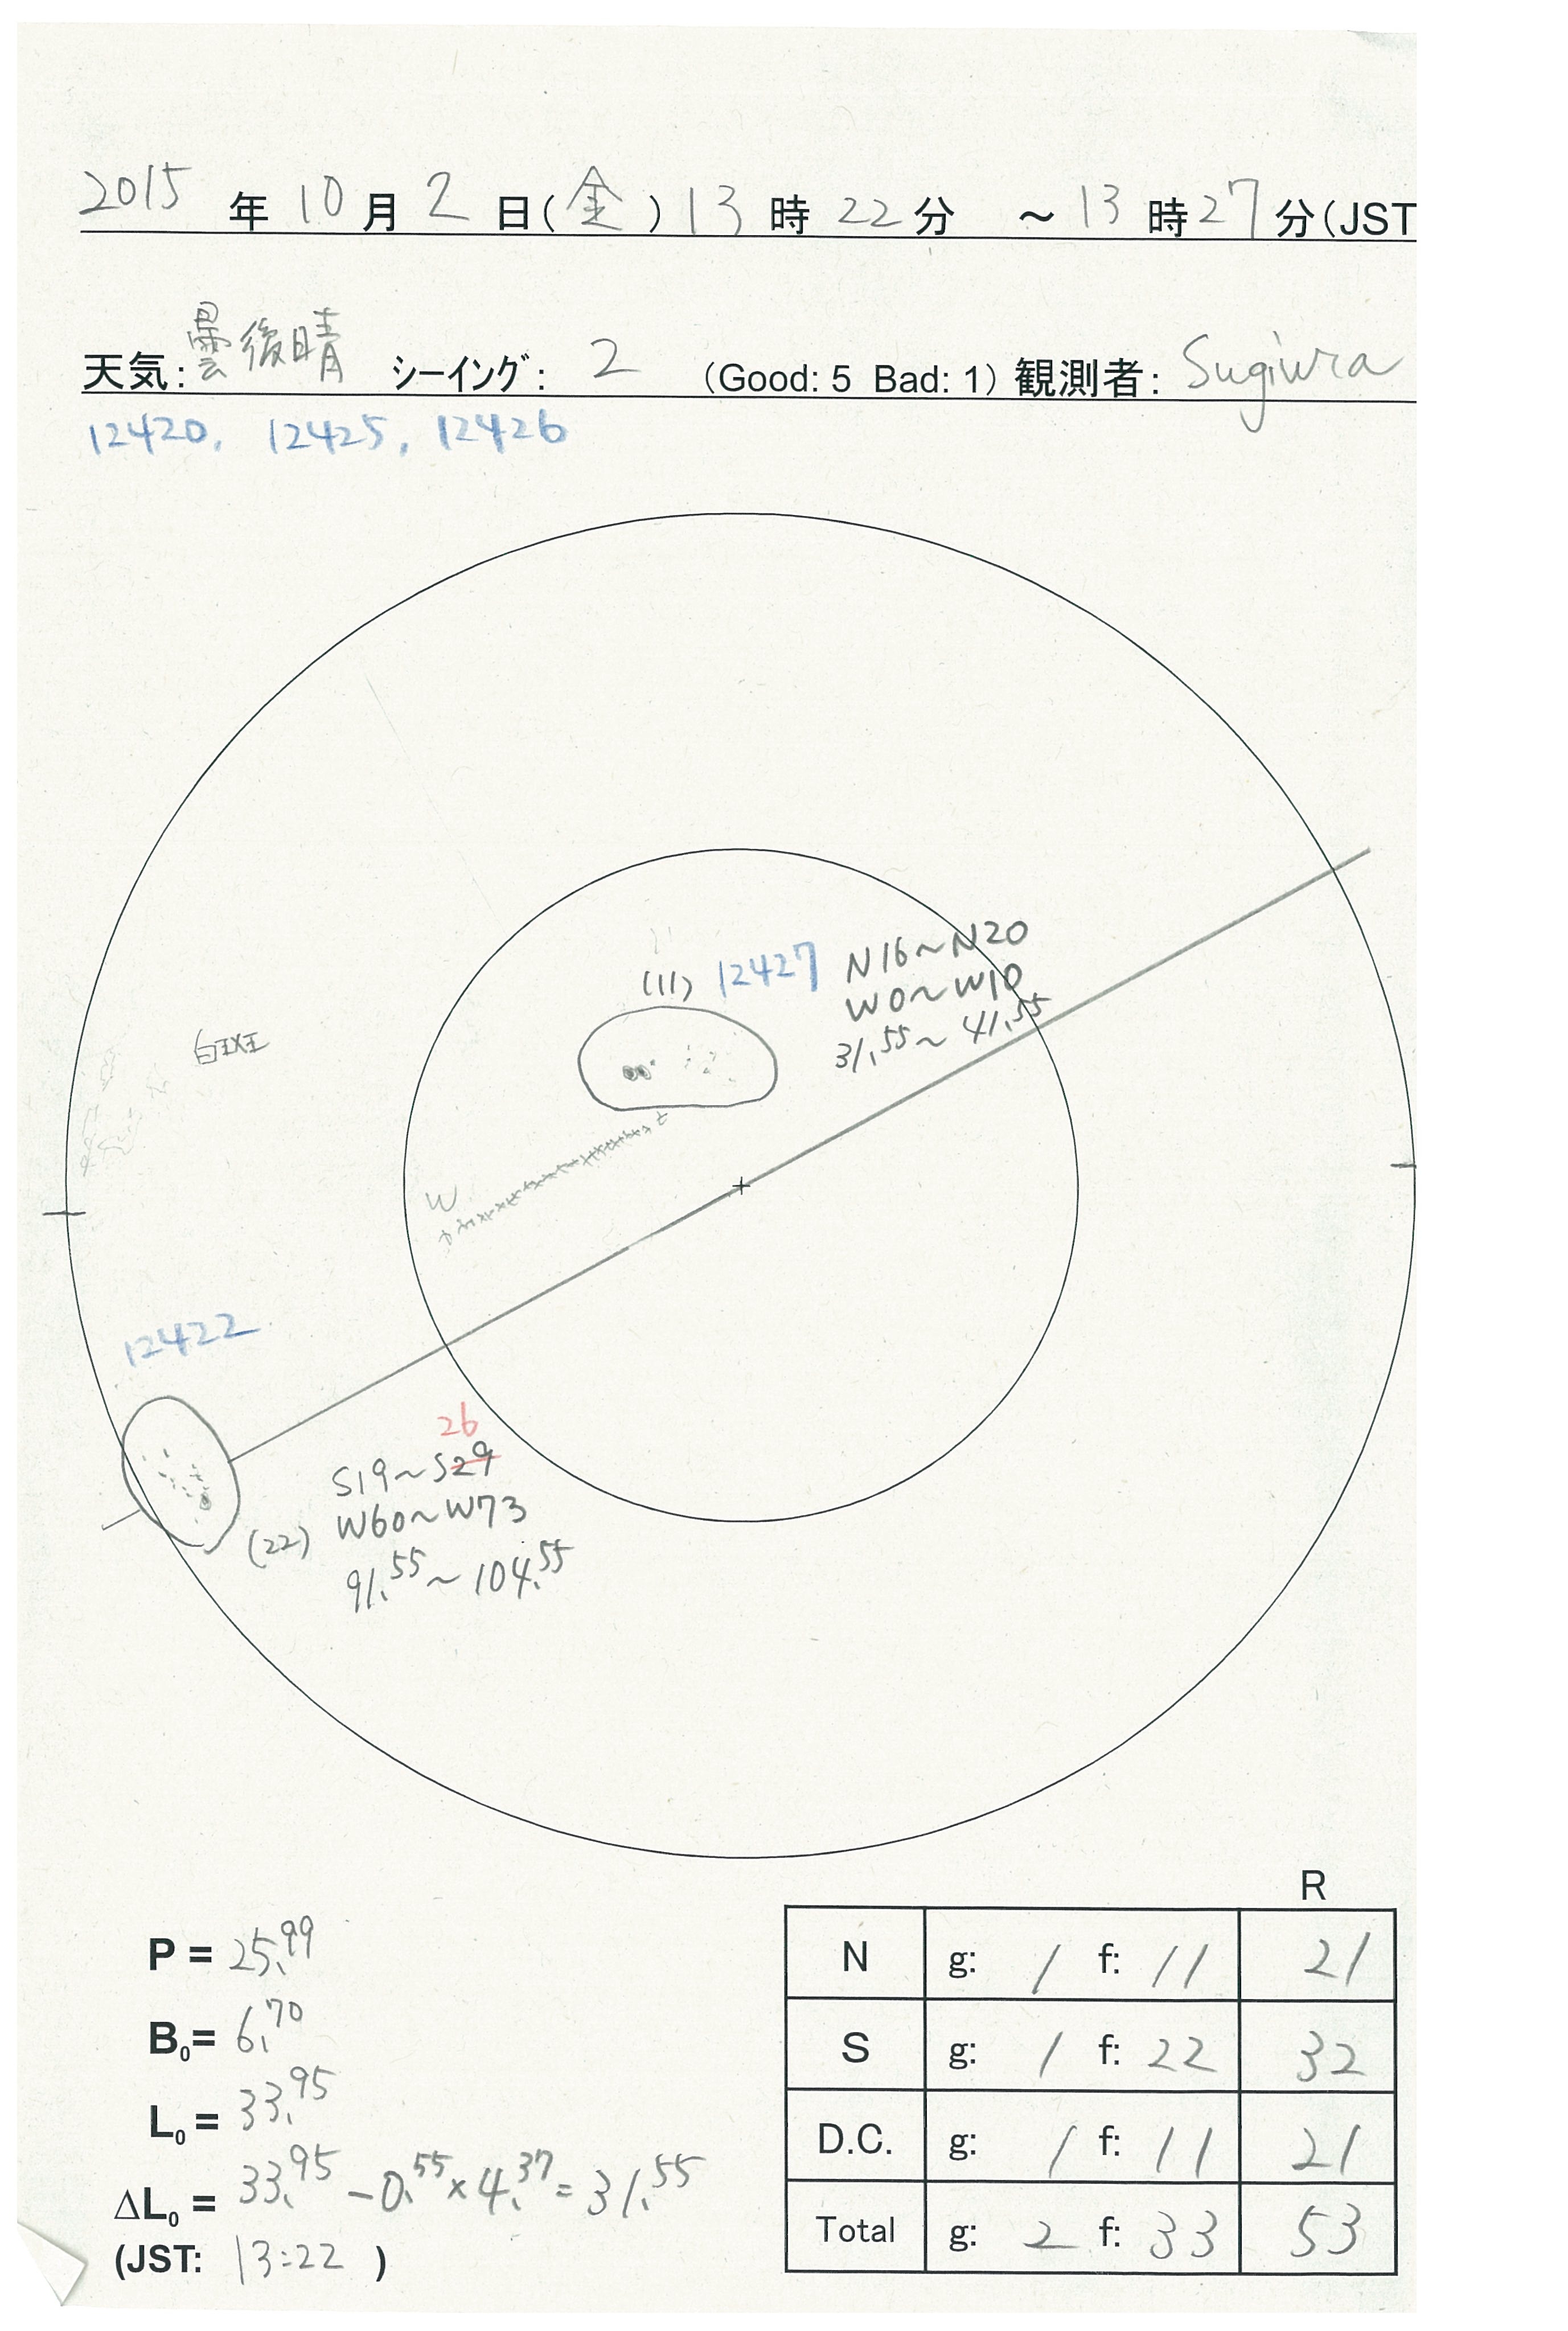 2015 年 10 月 2 日(金) 13 時 22 分 ～ 13 時 27 分(JST
天気: 曇後晴 シーイング: 2 (Good: 5 Bad: 1) 観測者: Sugiura
12420, 12425, 12426
(11) 12427 N16~N20
W0~W10
31.55~41.55
白斑
W
12422
26
S19~S29
W60~W73
(22)
91.55~104.55
R
P = 25.99
B0= 6.70
L0 = 33.95
ΔL0 = 33.95 - 0.55 × 4.37 = 31.55
(JST: 13:22 )
N g: 1 f: 11 21
S g: 1 f: 22 32
D.C. g: 1 f: 11 21
Total g: 2 f: 33 53